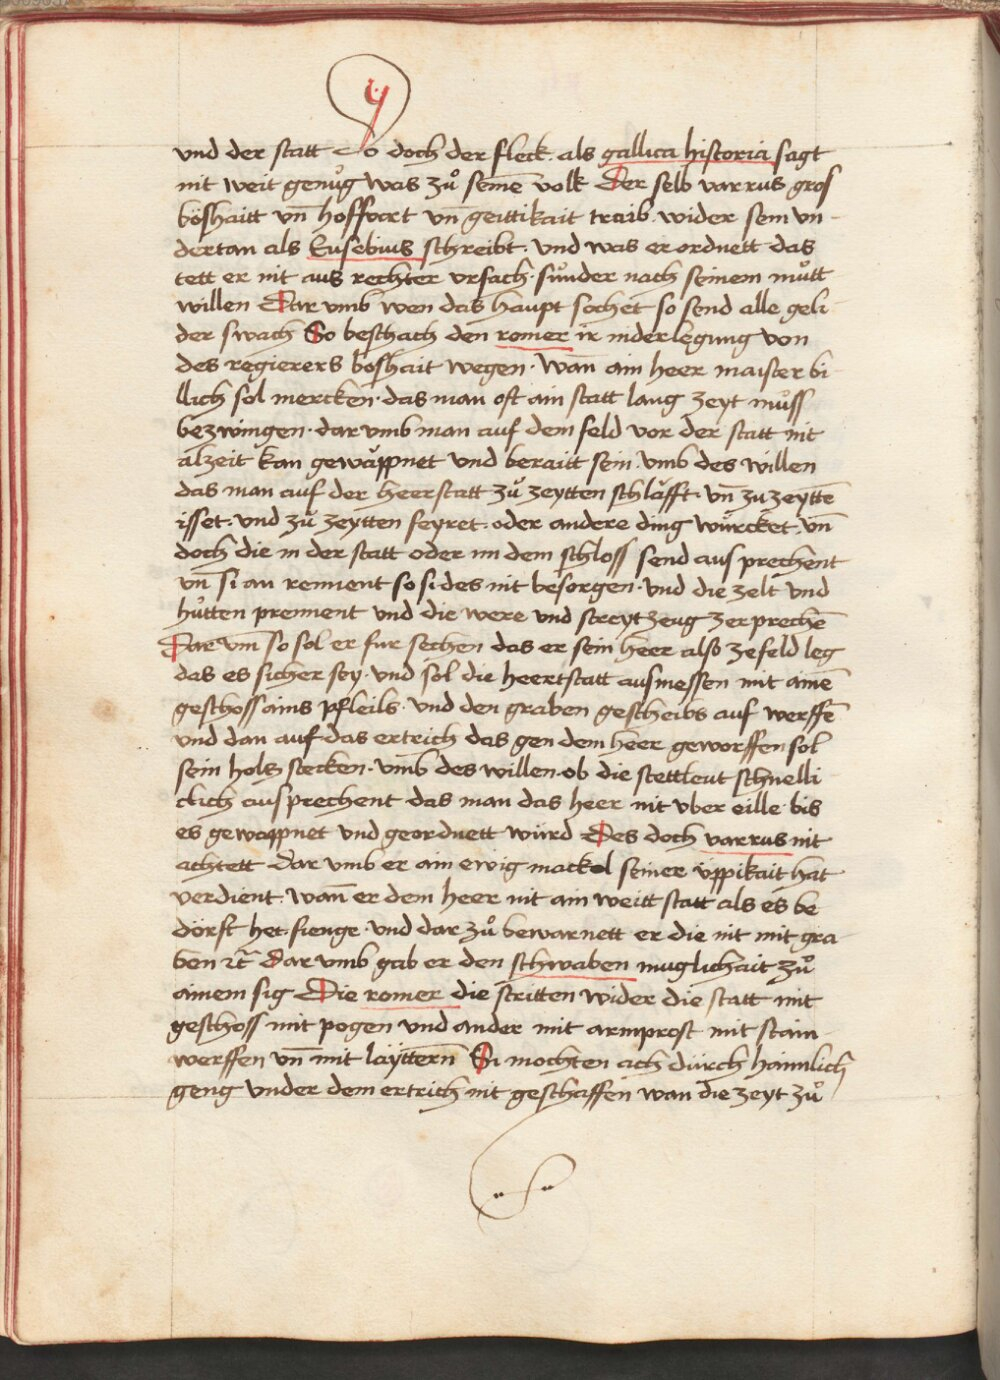 y
vnd der statt So doch der fleck als gallica historia sagt
nit weit genůg was zů seinē volk Der selb varrus gros
böshaitt vn̄ hoffvart vn̄ geittikait traib wider sein vn-
dertan als Eusebius schreibt · vnd was er ordnett das
tett er nit aus rechter vrsach · sůnder nach seinem můtt
willen Dar vmb wen das haupt sochet so send alle geli-
der swach So beschach den romer ir niderlegung von
des regierers boshait wegen · wan̄ ain heer maister bi-
llich sol mercken · das man oft ain statt lang zeyt můss
bezwingen · dar vmb man auf dem feld vor der statt nit
alzeit kan gewäppnet vnd beraitt sein · vmb des willen
das man auf der heerstatt zů zeytten schläfft · vn̄ zu zeyttē
isset · vnd zů zeytten feyret · oder andere ding würcket · vn̄
doch die in der statt oder im dem schloss send aus prechent
vn̄ si an rennent so si des nit besorgen · vnd die zelt vnd
hůtten prennent vnd die were vnd streytzeug zerprechē
Dar vm̄ so sol er fur sechen das er sein heer also zefeld leg
das es sicher sey · vnd sol die heertstatt ausmessen mit ainē
geschoss ains pfleils · vnd den graben gescheibs auf werffē
vnd dan auf das ertrich das gen dem heer geworffen sol
sein holtz stecken · vmb des willen · ob die stettleut schnelli-
clich ausprechent das man das heer nit vber eille bis
es gewappnet vnd geordnett würd Des doch varrus nit
achtett dar vmb er ain ewig mackel seiner üppikait hat
verdient · wan̄ er dem heer nit ain weitt statt als es be
dörft het fienge · vnd dar zů bewarnett er die nit mit gra-
ben ꝛc̄ dar vmb gab er den schwaben muglichait zů
ainem sig Die romer die stritten wider die statt mit
geschoss mit pogen vnd ander mit armprost mit stain-
werffen vn̄ mit läyttern̄ Si mochten ach dürch haimlich
geng vnder dem ertrich nit geschaffen wan die zeyt zů